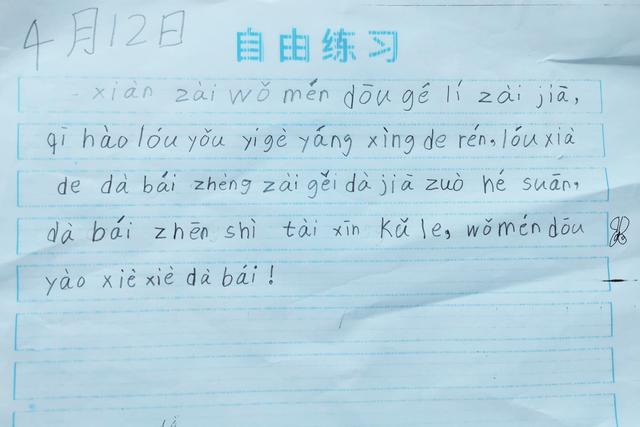 4月12日
自由练习
xiàn zài wǒ mén dōu gé lí zài jiā,
qī hào lóu yǒu yí gè yáng xìng de rén, lóu xià
de dà bái zhèng zài gěi dà jiā zuò hé suān,
dà bái zhēn shì tài xīn kǔ le, wǒ mén dōu
yào xiè xiè dà bái!